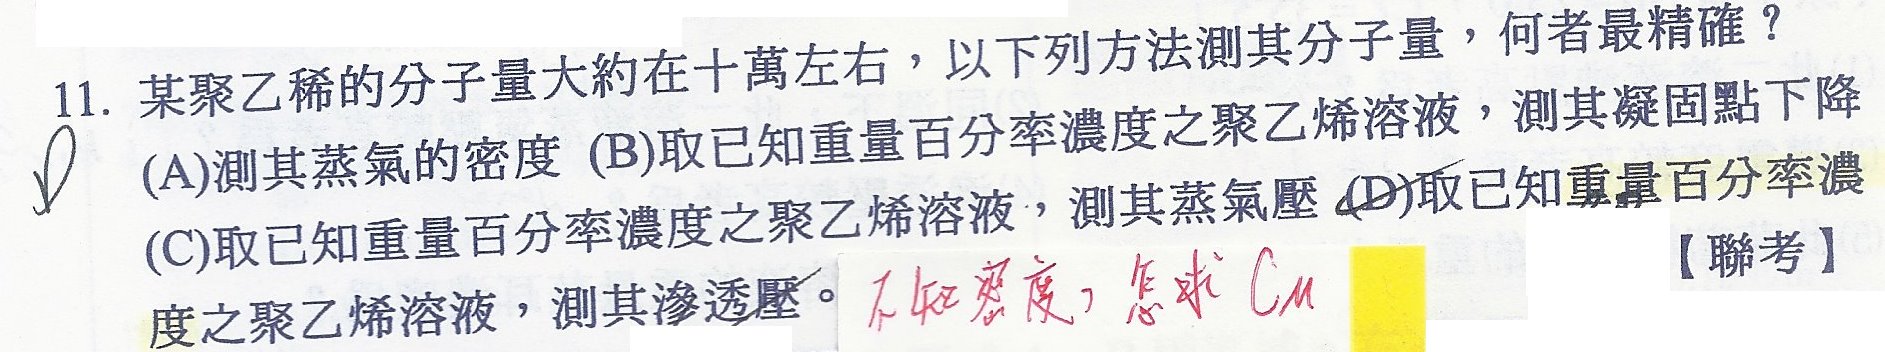 11. 某聚乙稀的分子量大約在十萬左右，以下列方法測其分子量，何者最精確？
(A)測其蒸氣的密度 (B)取已知重量百分率濃度之聚乙烯溶液，測其凝固點下降
(C)取已知重量百分率濃度之聚乙烯溶液，測其蒸氣壓 (D)取已知重量百分率濃
度之聚乙烯溶液，測其滲透壓。 【聯考】
D
不知密度，怎求 CM